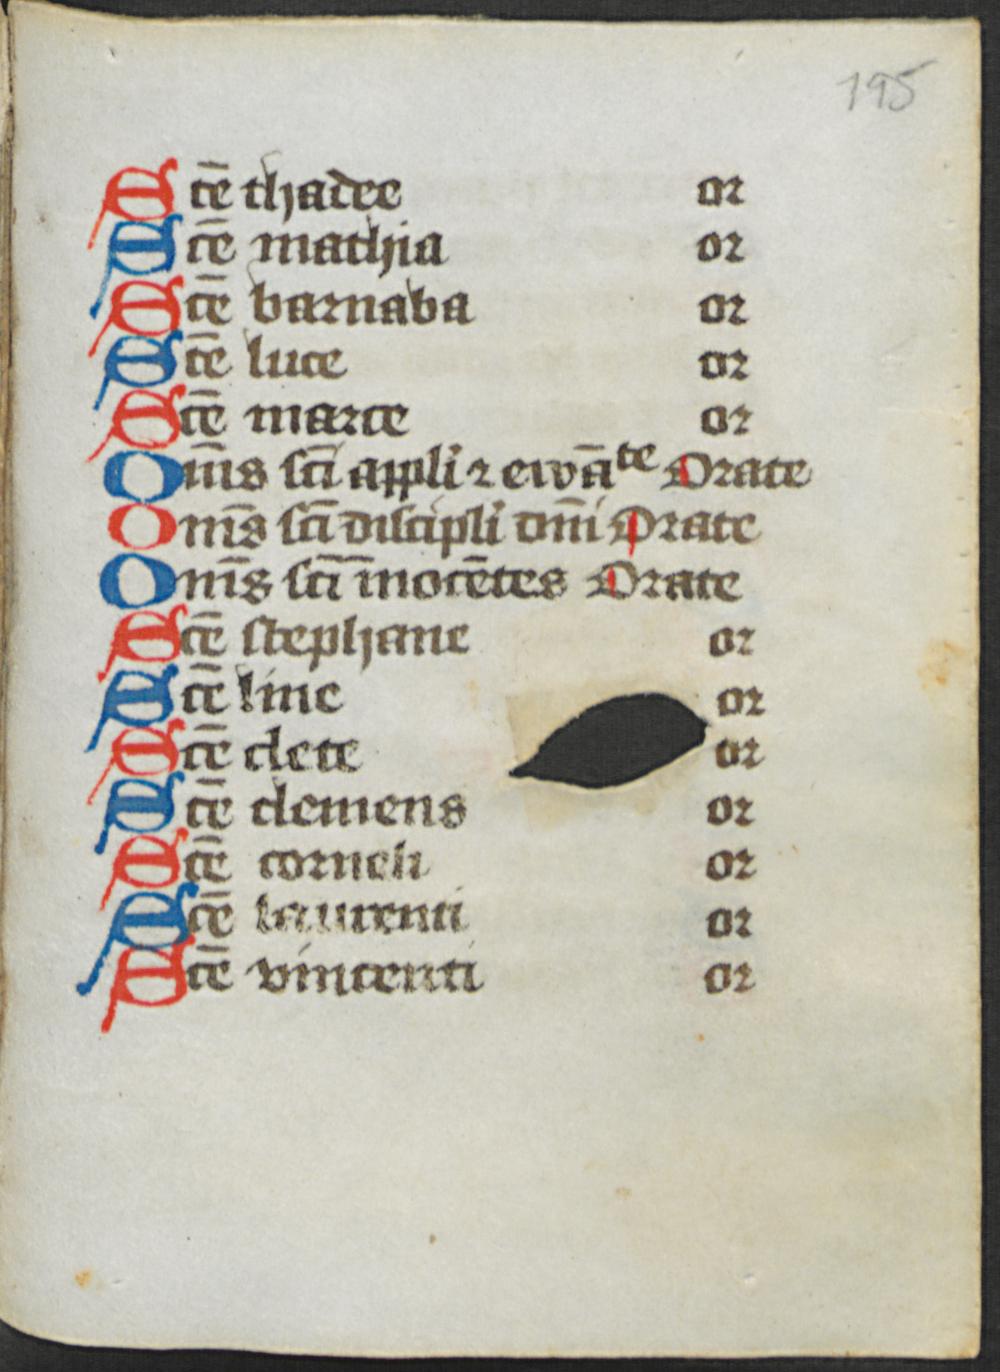 195
Scē thadee or
Scē mathia or
Scē barnaba or
Scē luce or
Scē marce or
Om̄s sc̄i appl̓i ⁊ ewāᵗᵉ Orate
Om̄s sc̄i discipl̓i dn̄i Orate
Om̄s sc̄i īnocētes Orate
Scē stephane or
Scē line or
Scē clete or
Scē clemens or
Scē corneli or
Scē laurenti or
Scē vincenti or